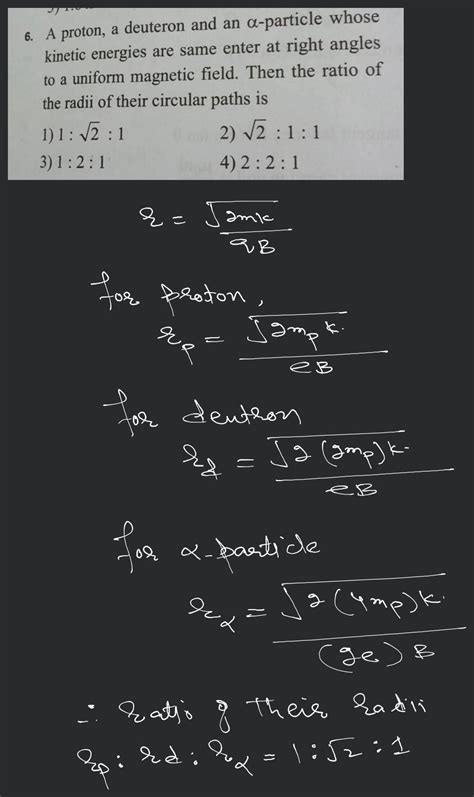 6. A proton, a deuteron and an α-particle whose
kinetic energies are same enter at right angles
to a uniform magnetic field. Then the ratio of
the radii of their circular paths is
1) 1 : √2 : 1 2) √2 : 1 : 1
3) 1 : 2 : 1 4) 2 : 2 : 1
r = √2mk / qB
for proton,
r_p = √2m_p k. / eB
for deutron
r_d = √2(2m_p)k. / eB
for α-particle
r_α = √2(4m_p)k. / (2e)B
∴ Ratio of their radii
r_p : r_d : r_α = 1 : √2 : 1